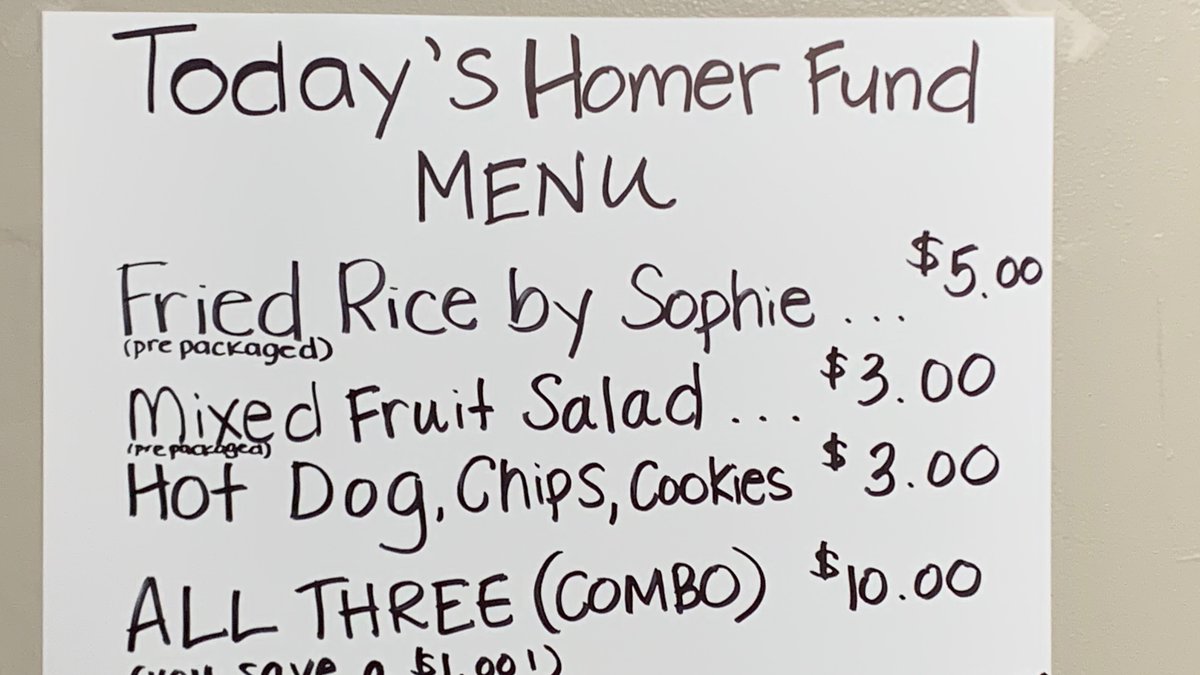 Today's Homer Fund
MENU
Fried Rice by Sophie ... $5.00
(pre packaged)
Mixed Fruit Salad ... $3.00
(pre packaged)
Hot Dog, Chips, Cookies $3.00
ALL THREE (COMBO) $10.00
(you save a $1.00!)